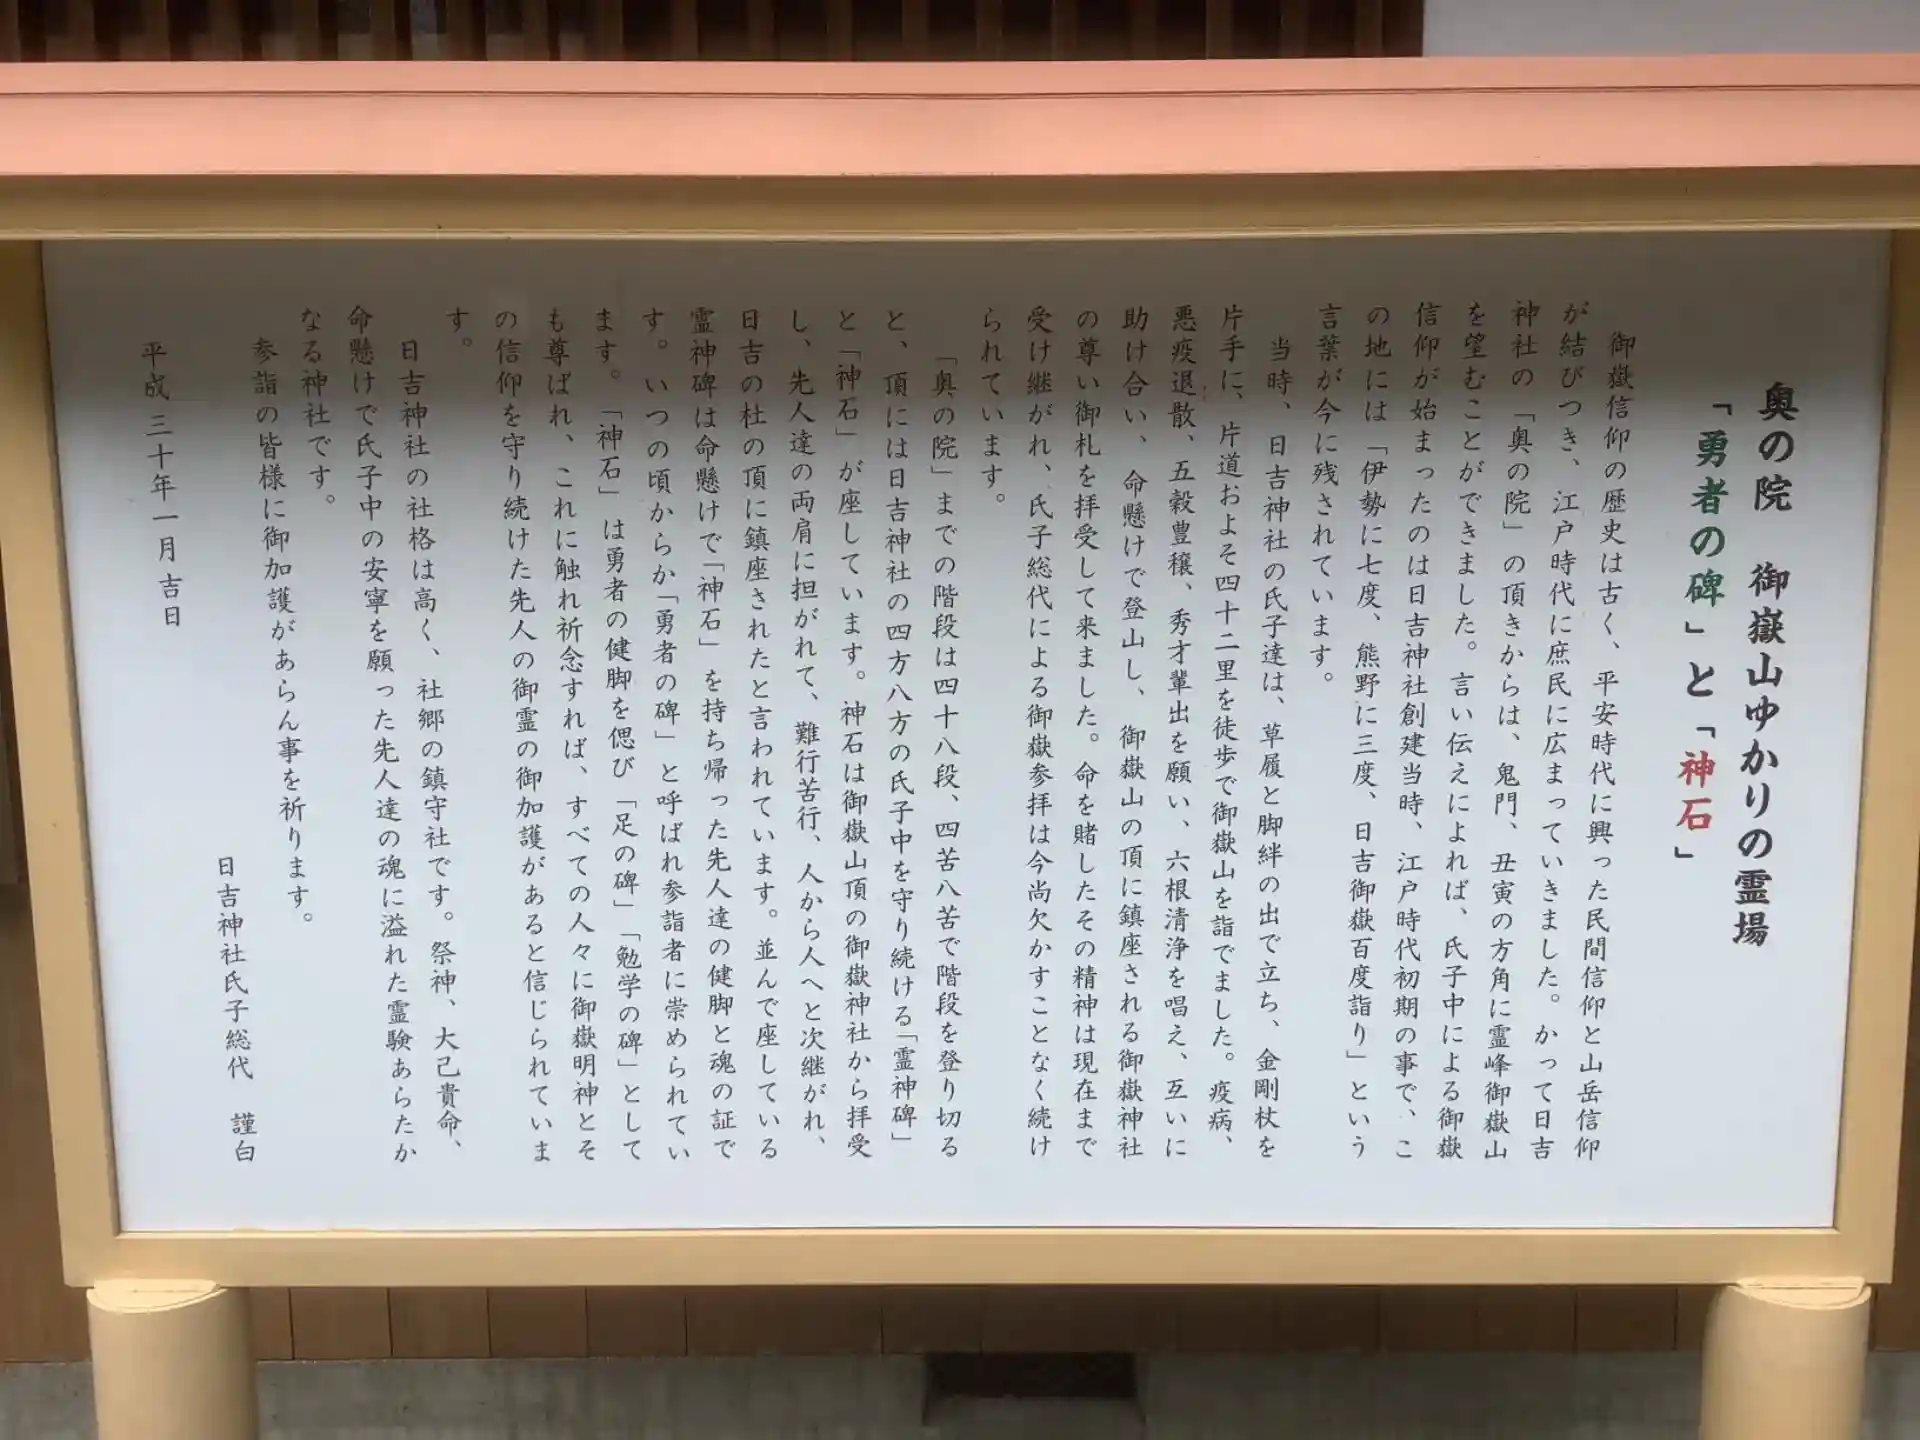 奥の院　御嶽山ゆかりの霊場
「勇者の碑」と「神石」
御嶽信仰の歴史は古く、平安時代に興った民間信仰と山岳信仰
が結びつき、江戸時代に庶民に広まっていきました。かって日吉
神社の「奥の院」の頂きからは、鬼門、丑寅の方角に霊峰御嶽山
を望むことができました。言い伝えによれば、氏子中による御嶽
信仰が始まったのは日吉神社創建当時、江戸時代初期の事で、こ
の地には「伊勢に七度、熊野に三度、日吉御嶽百度詣り」という
言葉が今に残されています。
当時、日吉神社の氏子達は、草履と脚絆の出で立ち、金剛杖を
片手に、片道およそ四十二里を徒歩で御嶽山を詣でました。疫病、
悪疫退散、五穀豊穣、秀才輩出を願い、六根清浄を唱え、互いに
助け合い、命懸けで登山し、御嶽山の頂に鎮座される御嶽神社
の尊い御札を拝受して来ました。命を賭したその精神は現在まで
受け継がれ、氏子総代による御嶽参拝は今尚欠かすことなく続け
られています。
「奥の院」までの階段は四十八段、四苦八苦で階段を登り切る
と、頂には日吉神社の四方八方の氏子中を守り続ける「霊神碑」
と「神石」が座しています。神石は御嶽山頂の御嶽神社から拝受
し、先人達の両肩に担がれて、難行苦行、人から人へと次継がれ、
日吉の杜の頂に鎮座されたと言われています。並んで座している
霊神碑は命懸けで「神石」を持ち帰った先人達の健脚と魂の証で
す。いつの頃からか「勇者の碑」と呼ばれ参詣者に崇められてい
ます。「神石」は勇者の健脚を偲び「足の碑」「勉学の碑」として
も尊ばれ、これに触れ祈念すれば、すべての人々に御嶽明神とそ
の信仰を守り続けた先人の御霊の御加護があると信じられていま
す。
日吉神社の社格は高く、社郷の鎮守社です。祭神、大己貴命、
命懸けで氏子中の安寧を願った先人達の魂に溢れた霊験あらたか
なる神社です。
参詣の皆様に御加護があらん事を祈ります。
日吉神社氏子総代　謹白
平成三十年一月吉日